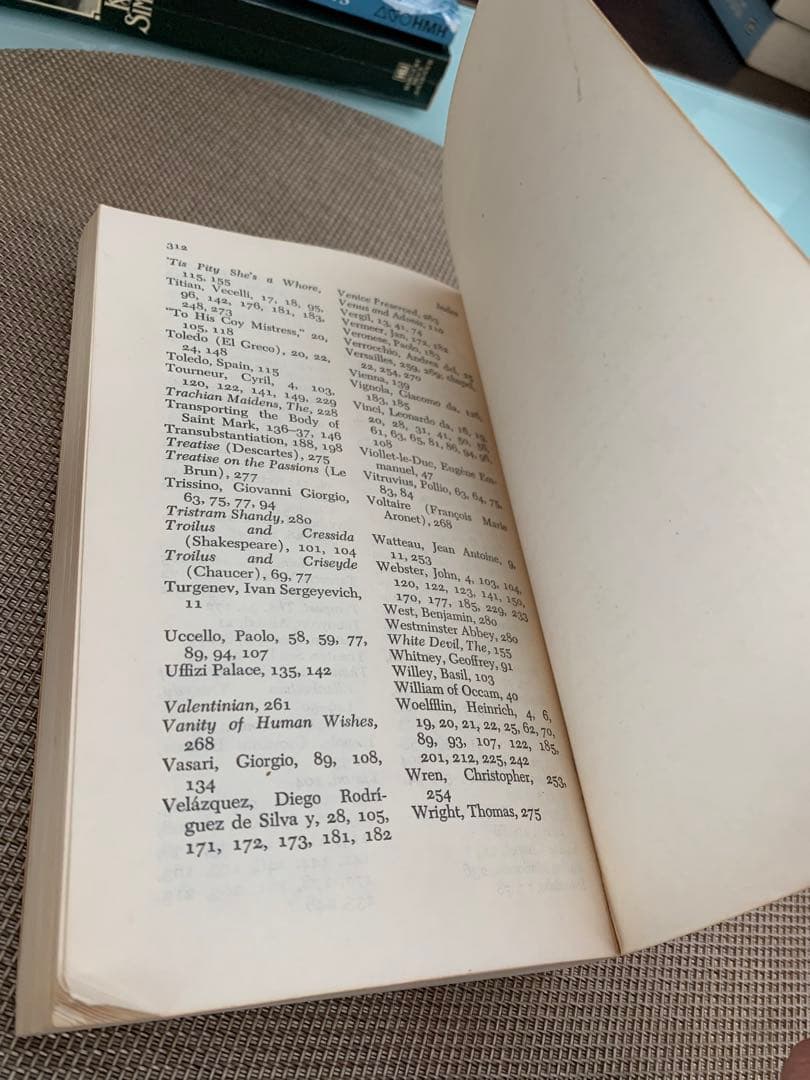 HMH
312
Index
'Tis Pity She's a Whore,
115, 155
Titian, Vecelli, 17, 18, 95,
96, 142, 176, 181, 183,
248, 273
"To His Coy Mistress," 20,
105, 118
Toledo (El Greco), 20, 22,
24, 148
Toledo, Spain, 115
Tourneur, Cyril, 4, 103,
120, 122, 141, 149, 229
Trachian Maidens, The, 228
Transporting the Body of
Saint Mark, 136-37, 146
Transubstantiation, 188, 198
Treatise (Descartes), 275
Treatise on the Passions (Le
Brun), 277
Trissino, Giovanni Giorgio,
63, 75, 77, 94
Tristram Shandy, 280
Troilus and Cressida
(Shakespeare), 101, 104
Troilus and Criseyde
(Chaucer), 69, 77
Turgenev, Ivan Sergeyevich,
11
Uccello, Paolo, 58, 59, 77,
89, 94, 107
Uffizi Palace, 135, 142
Valentinian, 261
Vanity of Human Wishes,
268
Vasari, Giorgio, 89, 108,
134
Velázquez, Diego Rodrí-
guez de Silva y, 28, 105,
171, 172, 173, 181, 182
Venice Preserved, 263
Venus and Adonis, 110
Vergil, 13, 41, 74
Vermeer, Jan, 172, 182
Veronese, Paolo, 183
Verrocchio, Andrea del, 25
Versailles, 259, 269; chapel,
22, 254, 270
Vienna, 139
Vignola, Giacomo da, 126,
183, 185
Vinci, Leonardo da, 18, 19,
20, 28, 31, 41, 50, 58,
61, 63, 65, 81, 86, 94, 98,
108
Viollet-le-Duc, Eugène Em-
manuel, 47
Vitruvius, Pollio, 63, 64, 75,
83, 84
Voltaire (François Marie
Aronet), 268
Watteau, Jean Antoine, 9,
11, 253
Webster, John, 4, 103, 104,
120, 122, 123, 141, 150,
170, 177, 185, 229, 233
West, Benjamin, 280
Westminster Abbey, 280
White Devil, The, 155
Whitney, Geoffrey, 91
Willey, Basil, 103
William of Occam, 40
Woelfflin, Heinrich, 4, 6,
19, 20, 21, 22, 25, 62, 70,
89, 93, 107, 122, 185,
201, 212, 225, 242
Wren, Christopher, 253,
254
Wright, Thomas, 275